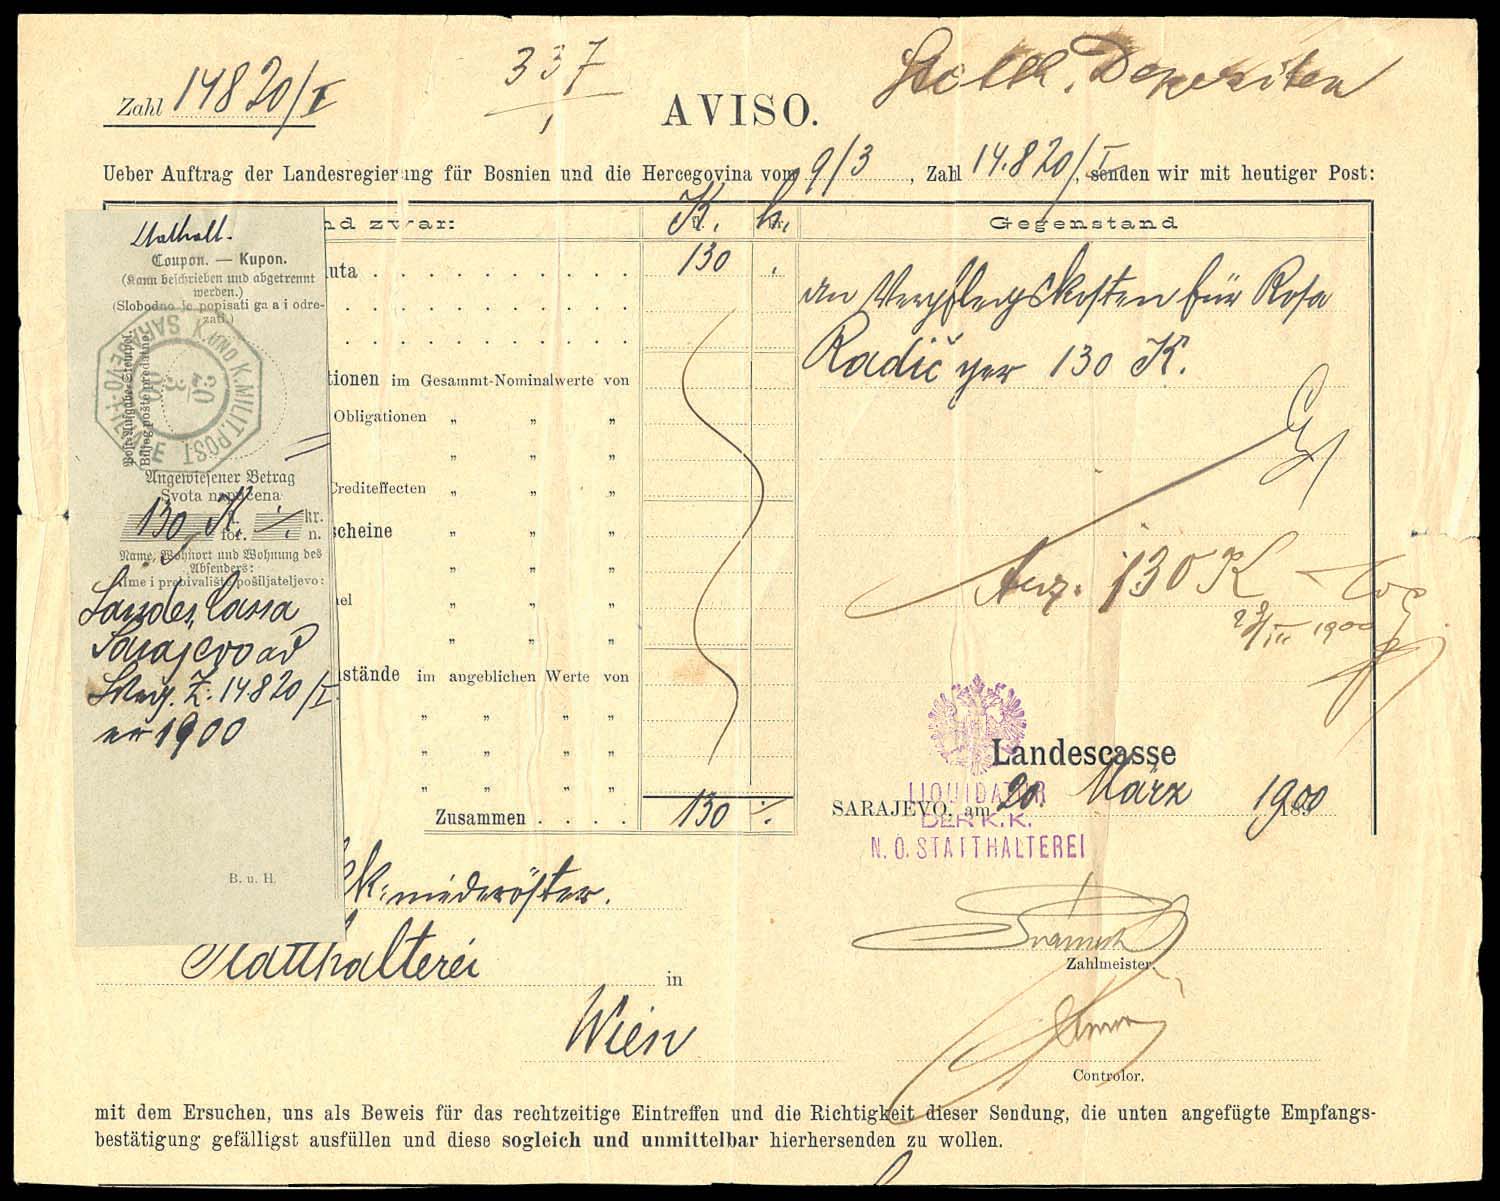 337
Statth. Depositen
Zahl 14820/I
AVISO.
Ueber Auftrag der Landesregierung für Bosnien und die Hercegovina vom 9/3, Zahl 14.820/I, senden wir mit heutiger Post:
nd zwar: K. h. Gegenstand
uta . . . . . . . . . . 130 .
an Verpflegskosten für Rosa
Radić per 130 K.
tionen im Gesammt-Nominalwerte von
Obligationen „ „ „
„ „ „
Crediteffecten „ „ „
scheine „ „ „
„ „ „
el „ „ „
„ „ „
nstände im angeblichen Werte von
„ „ „ „
„ „ „ „
„ „ „ „
Zusammen . . . . 130
130 K
1900
Statthalt.
Coupon. — Kupon.
(Kann beschrieben und abgetrennt
werden.)
(Slobodno je popisati ga a i odre-
zati.)
Post-Aufgabe-Stempel.
Biljeg pošte predatne.
K. UND K. MILIT. POST
SARAJEVO-FILIALE
20
3
00
Angewiesener Betrag
Svota napućena
130 K fl. kr.
for. n.
Name, Wohnort und Wohnung des
Absenders:
Ime i prebivalište pošiljateljevo:
Landes Cassa
Sarajevo ad
Z. 14820/I
1900
B. u. H.
Landescasse
SARAJEVO, am 20. März 1900 189
LIQUIDATUR
DER K. K.
N. Ö. STATTHALTEREI
k: niederöster.
Statthalterei in
Wien
Zahlmeister.
Controlor.
mit dem Ersuchen, uns als Beweis für das rechtzeitige Eintreffen und die Richtigkeit dieser Sendung, die unten angefügte Empfangs-
bestätigung gefälligst ausfüllen und diese sogleich und unmittelbar hierhersenden zu wollen.